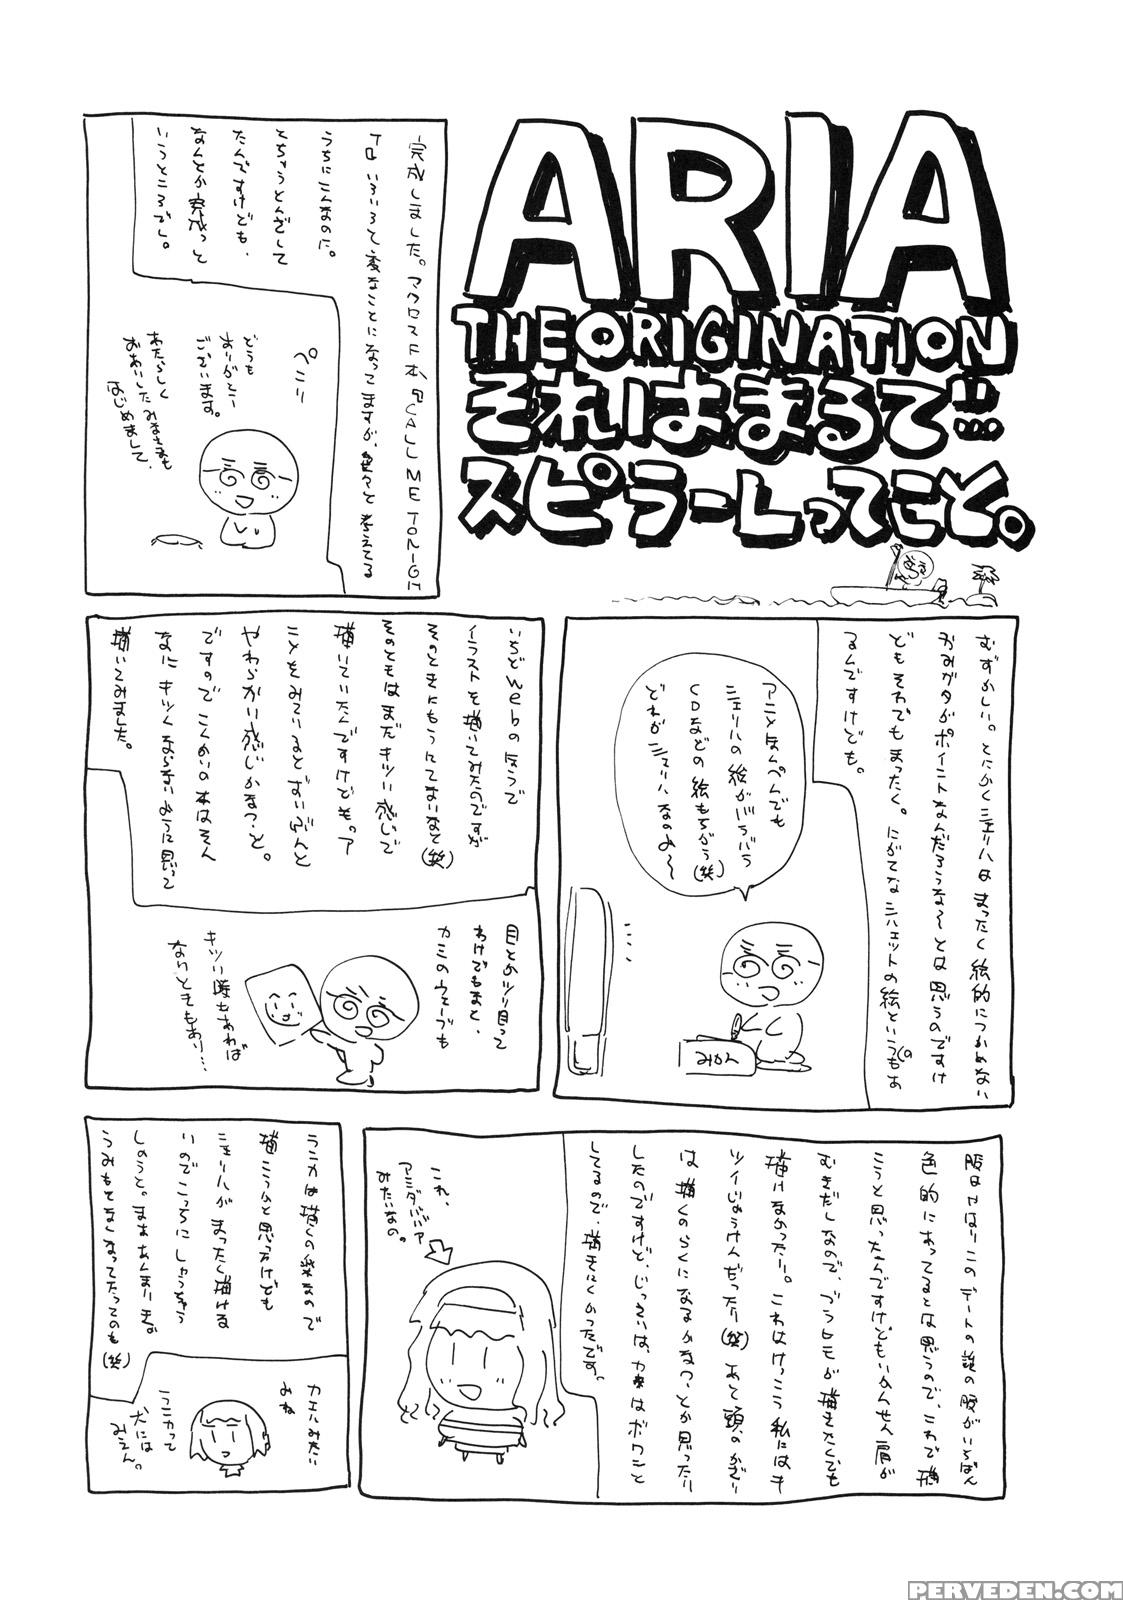 ARIA
THE ORIGINATION
それはまるで…
スピラーレってこと。
完成しました。マクロスF本、『CALL ME TONIGH
T』。いろいろと変なことになってますが、色々と考えてる
うちにこんなのに。
とちゅうとんざして
たんですけども、
なんとか完成っと
いうところでし。
ぺこり
どうも
ありがとう
ございます。
あたらしく
おあいしたみなさまも
はじめまして、
むずかしい。とにかくシェリルはまったく絵的につかめない
かみがたがポイントなんだろうな〜とは思うのですけ
どもそれでもまったく。にがてなシルエットの絵というのもあ
るんですけども。
アニメほんぺんでも
シェリルの絵がバラバラ
CDなどの絵もちがう(笑)
どれがシェリルなのよ〜
みかん
いちどwebのほうで
イラストを描いてみたのですが
そのときにもうにてないなと(笑)
そのときはまだキツい感じで
描いていたんですけども。ア
ニメをみているとずいぶんと
やわらかい感じかなっ、と。
ですのでこんかいの本はそん
なにキツくならないように思って
描いてみました。
目とかツリ目って
わけでもなく、
カミのウェーブも
キツい時もあれば
なりともあり…
服はやはりこのデートの話の服がいちばん
色的にあってるとは思うので、これで描
こうと思ったんですけどもいかんせん肩が
むきだしなので、ブラヒモが描きたくても
描けなかったり。これはけっこう私にはキ
ツイじょうけんだったり(笑)あと頭のかざり
は描くのらくになるかなっ、とか思ったり
したのですけど、じっさいは、かみはボワンと
してるので、描きにくかったです。
これ、
アミダババア
みたいなの。
ランカは描くの楽なので
描こうかと思ったけども
シェリルがまったく描ける
いのでこっちにしちゃう
しゅうと。まああんまりな
うみもとなくなってたってのも(笑)
カエルみたい
よね
ランカって
犬には
みえん。
PERVEDEN.COM